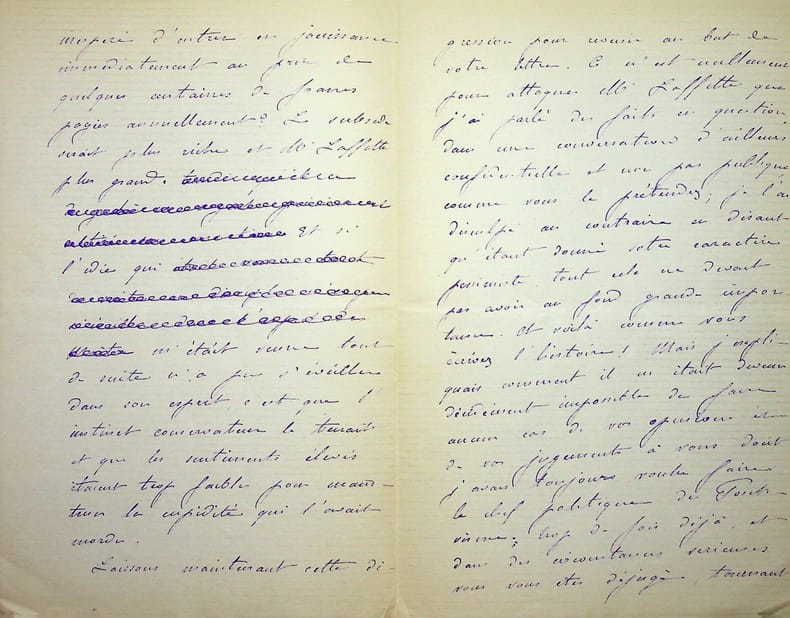 d'entrer en jouissance
immédiatement au prix de
quelques centaines de francs
payés annuellement? Le subside
serait plus riche et Mr Laffitte
plus grand.
Et si
l'idée qui
m'était venue tout
de suite n'a pu s'éveiller
dans son esprit c'est que l'
instinct conservateur le tenait
et que les sentiments élevés
étaient trop faibles pour
la cupidité qui l'avait
mordu.
Laissons maintenant cette di-
gression pour revenir au but de
votre lettre. Ce n'est nullement
pour attaquer Mr Laffitte que
j'ai parlé des faits en question
dans une conversation d'ailleurs
confidentielle et non pas publique
comme vous le prétendez; je l'ai
disculpé au contraire en disant
qu'étant donné votre caractère
pessimiste tout cela ne devait
pas avoir au fond grande impor
tance. Et voilà comme vous
écrivez l'histoire! Mais j'expli
quais comment il m'était devenu
décidément impossible de faire
aucun cas de vos opinions et
de vos jugements à vous dont
j'avais toujours voulu faire
le chef politique du Positi-
visme; trop de fois déjà, et
dans des circonstances sérieuses
vous vous êtes déjugé, tournant